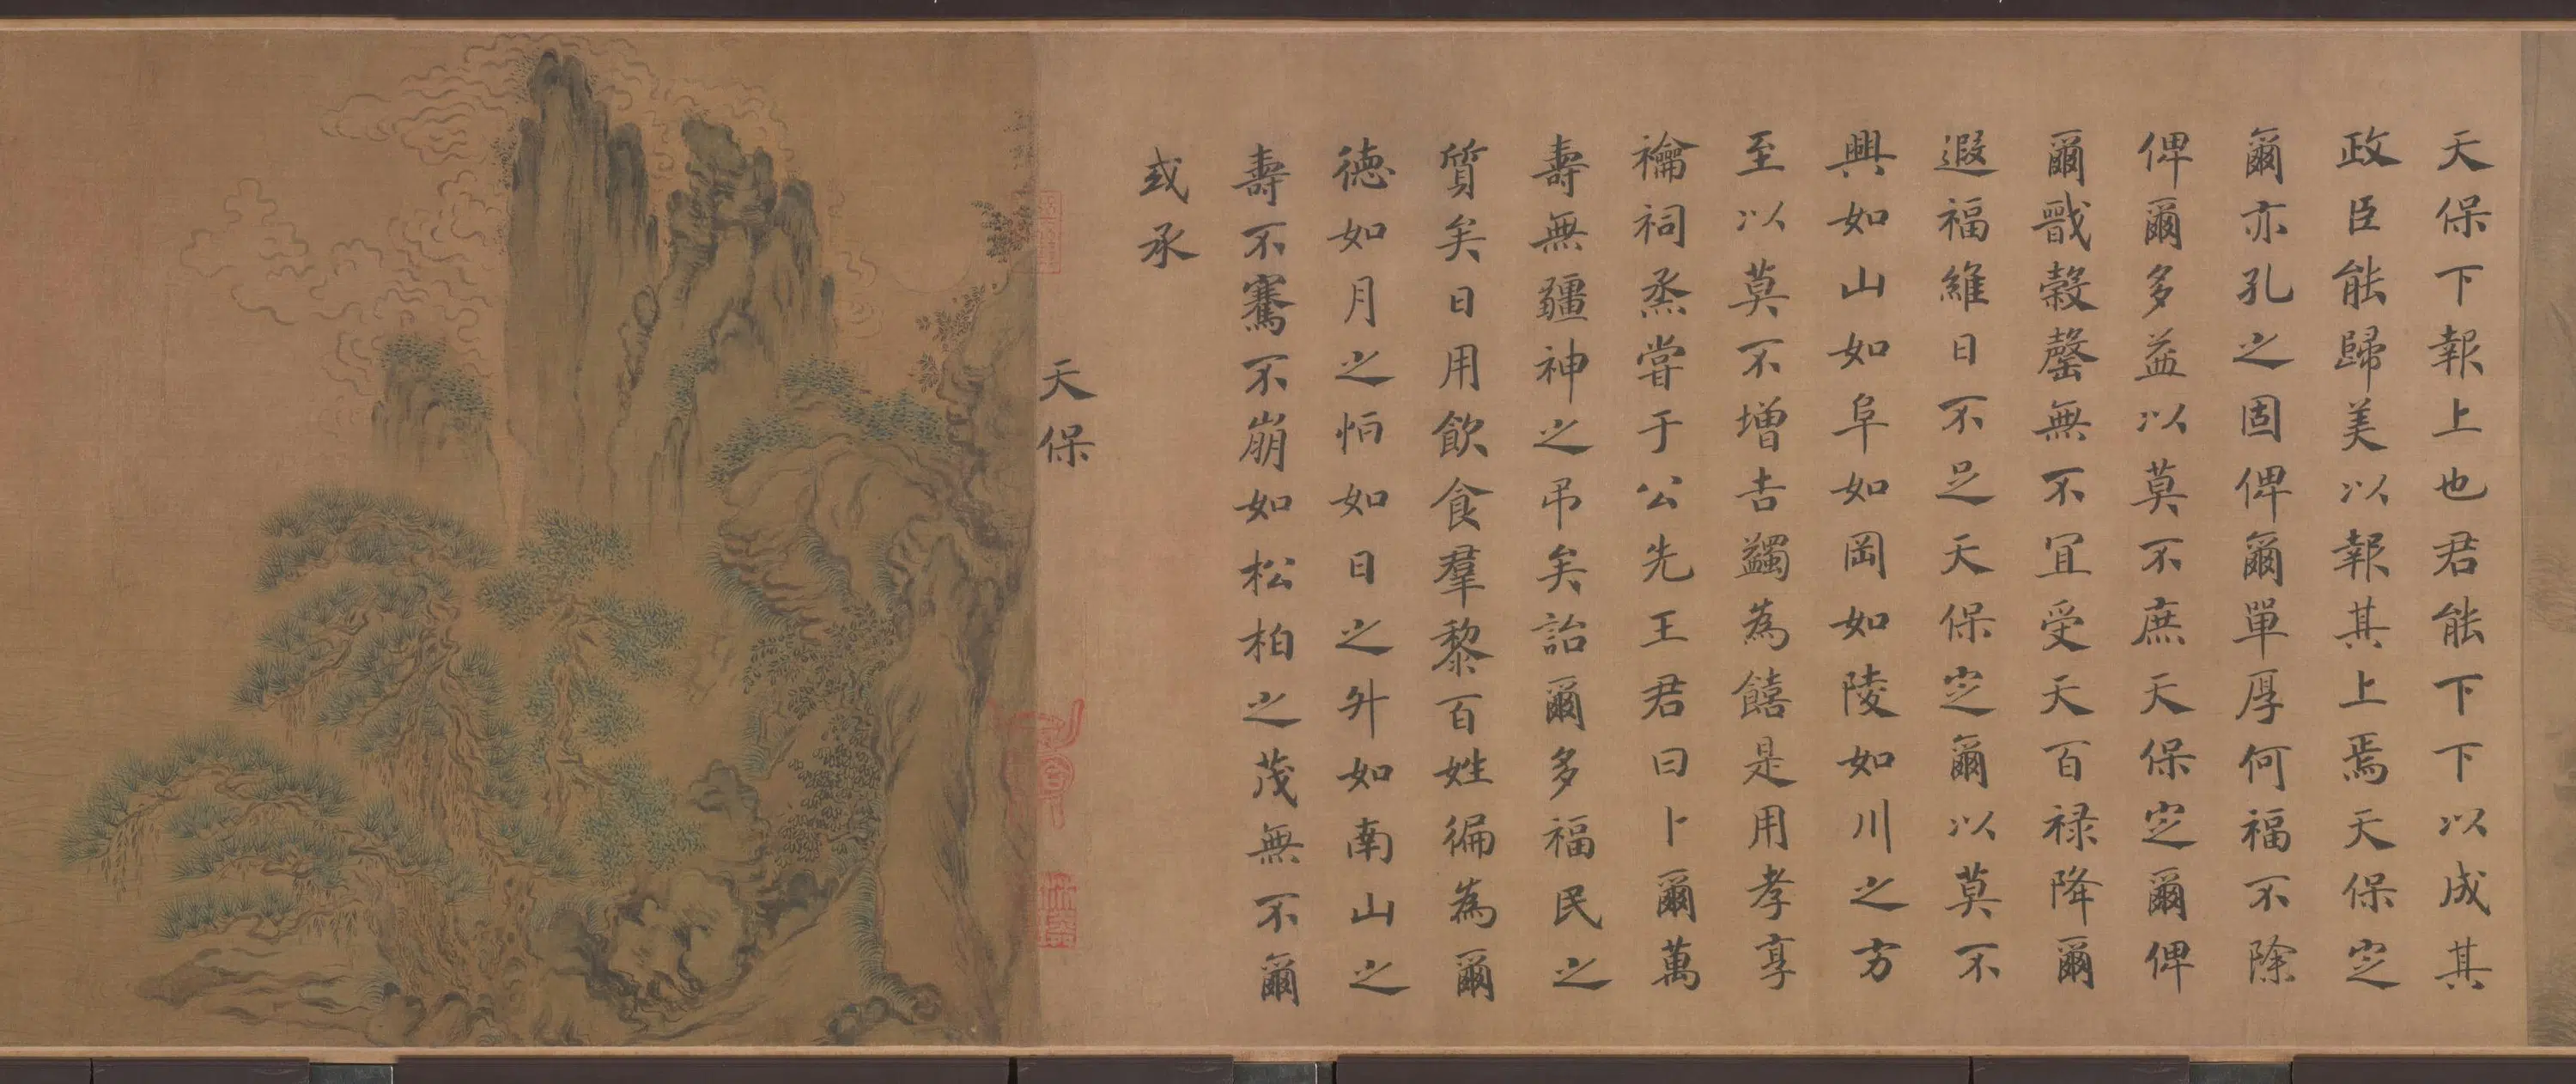 天保下報上也君能下下以成其
政臣能歸美以報其上焉天保定
爾亦孔之固俾爾單厚何福不除
俾爾多益以莫不庶天保定爾俾
爾戩穀罄無不宜受天百禄降爾
遐福維日不足天保定爾以莫不
興如山如阜如岡如陵如川之方
至以莫不增吉蠲為饎是用孝享
禴祠烝甞于公先王君曰卜爾萬
壽無疆神之吊矣詒爾多福民之
質矣日用飲食羣黎百姓徧為爾
徳如月之恒如日之升如南山之
壽不騫不崩如松柏之茂無不爾
或承
天保